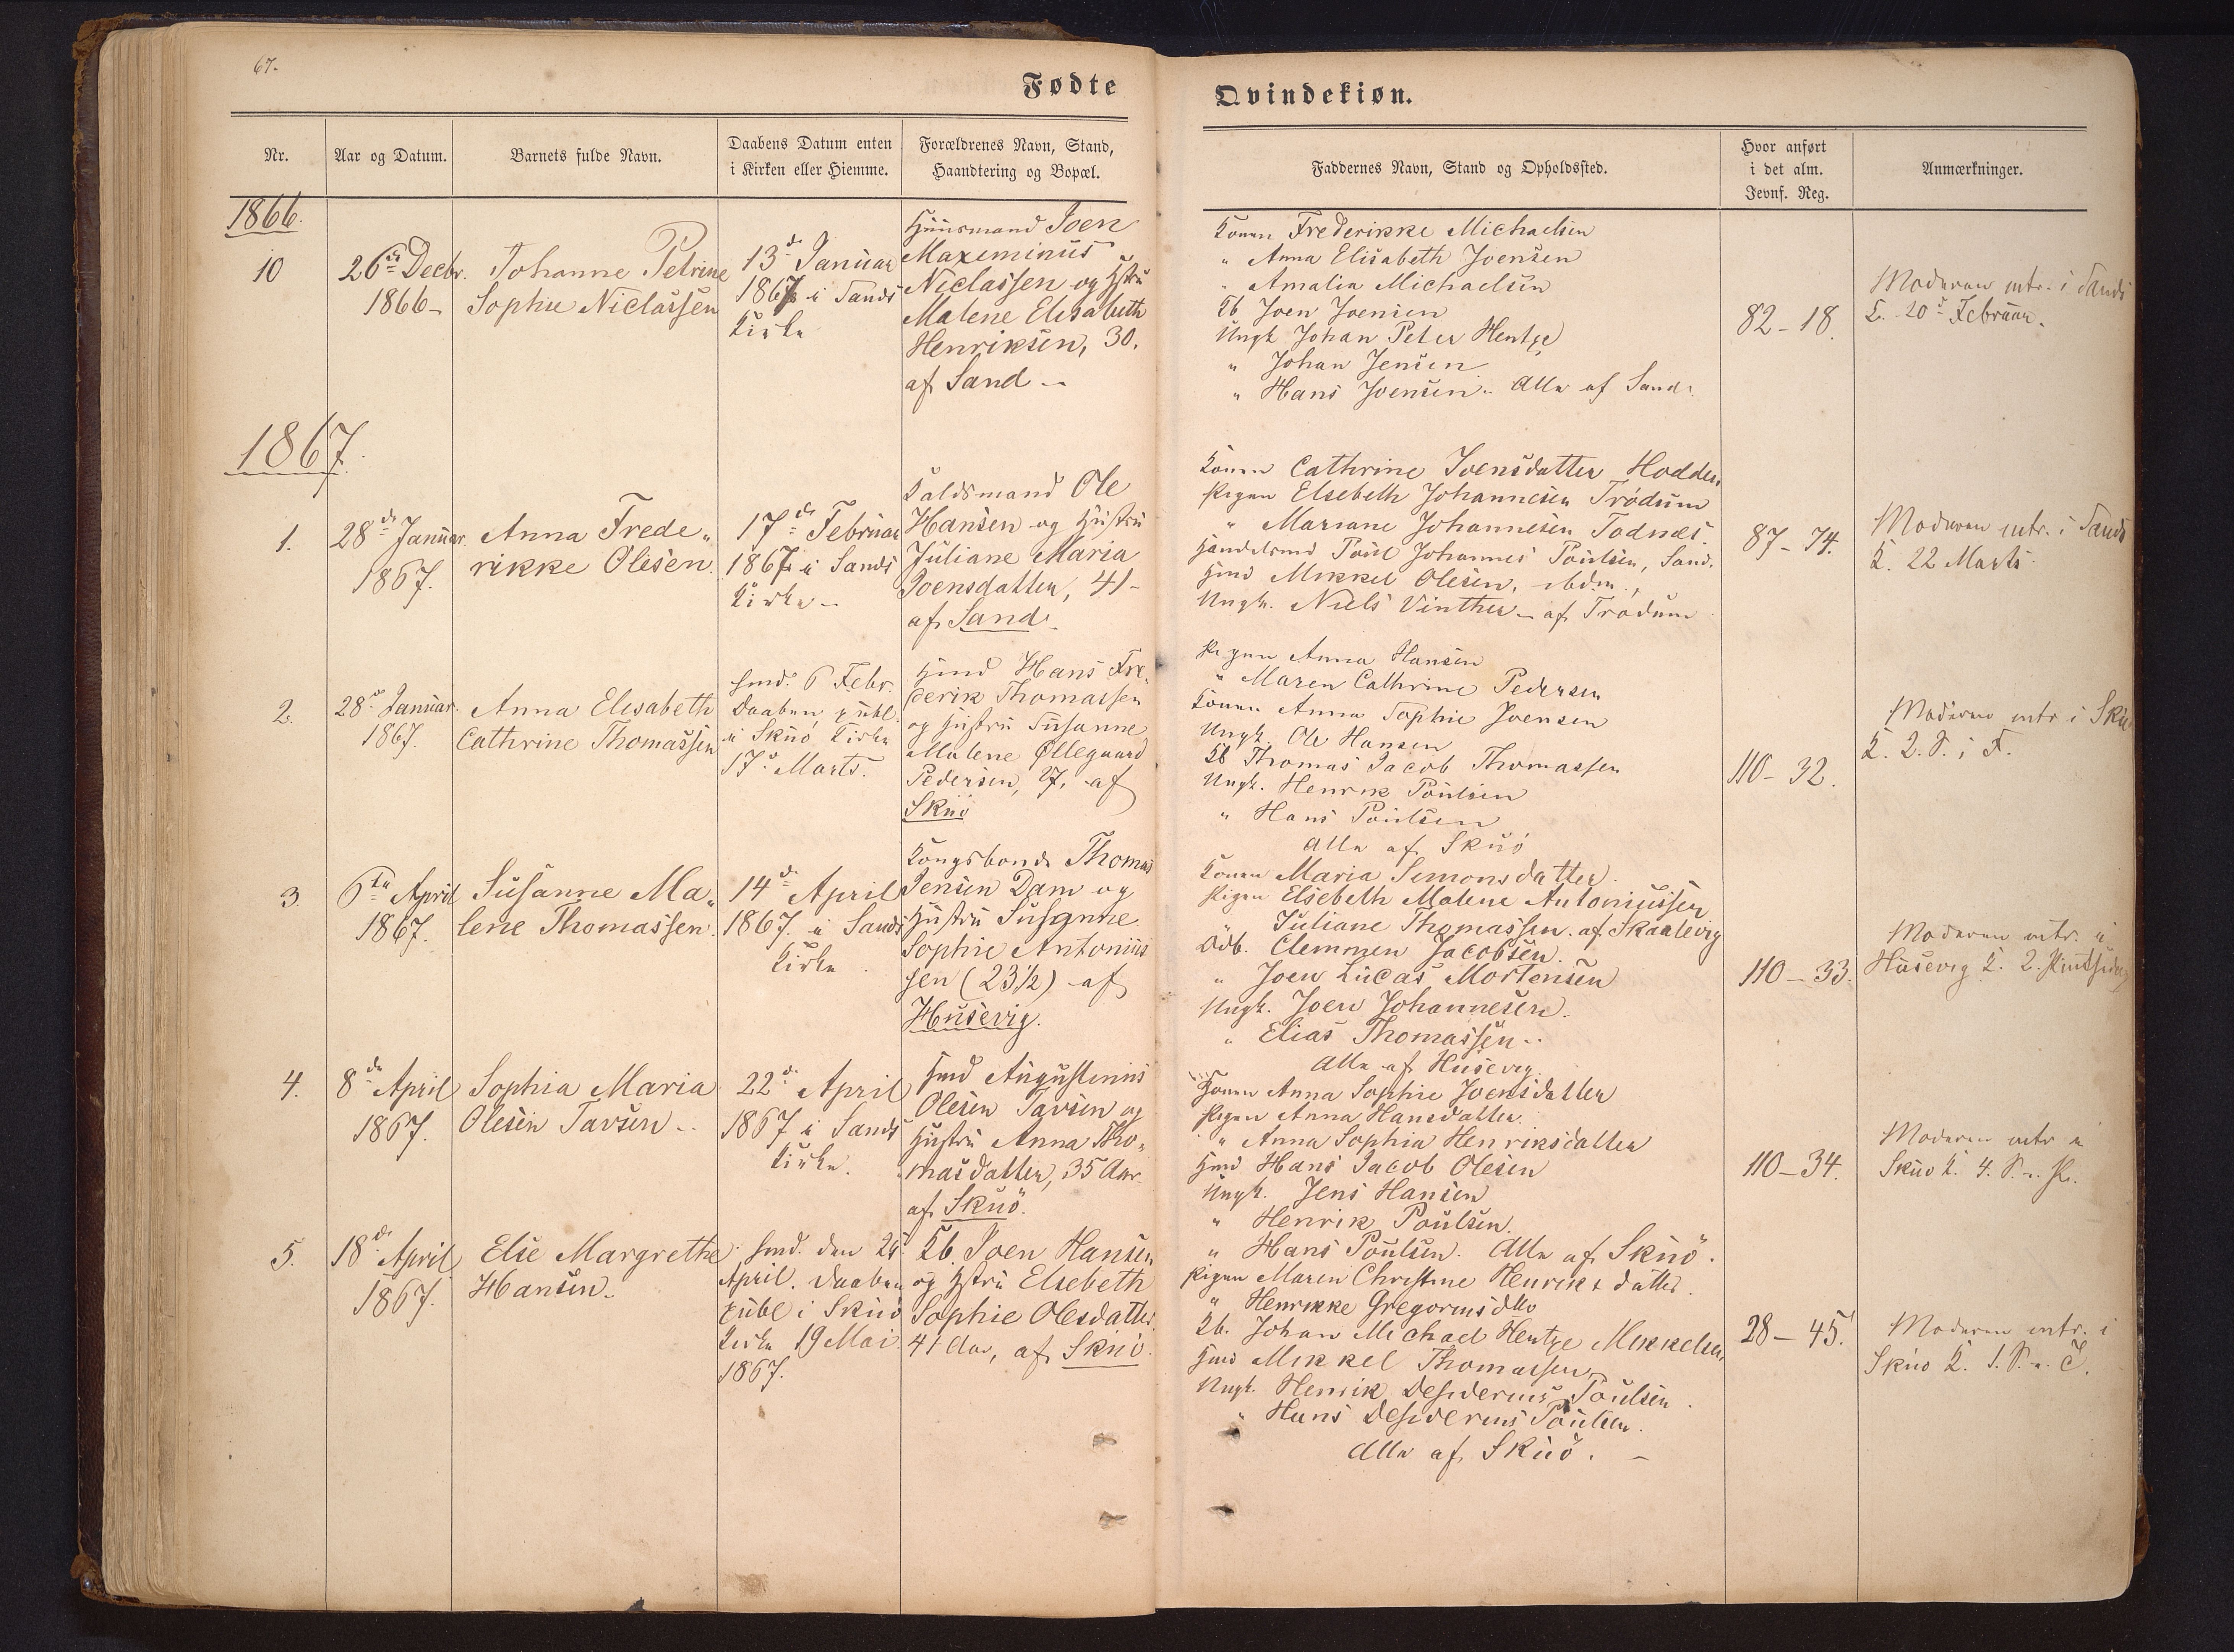 67.
Fødte
Qvindekiøn.
Nr.
Aar og Datum.
Barnets fulde Navn.
Daabens Datum enten
i Kirken eller Hiemme.
Forældrenes Navn, Stand,
Haandtering og Bopæl.
Faddernes Navn, Stand og Opholdssted.
Hvor anført
i det alm.
Jevnf. Reg.
Anmærkninger.
1866.
10
26de Decbr.
1866 –
Johanne Petrine
Sophie Niclassen
13de Januar
1867 i Sands
Kirke
Huusmand Joen
Maxeminus
Niclassen og Hstru
Malene Elisabeth
Henriksen, 30.
af Sand –
Konen Frederikke Michaelsen
" Anna Elisabeth Joensen
" Amalia Michaelsen
Kb Joen Joensen
Ungk Johan Peter Hentze
" Johan Jensen
" Hans Joensen – Alle af Sand.
82 – 18.
Moderen intr. i Sands
K. 20de Februar.
1867.
1.
28de Januar
1867.
Anna Frede„
rikke Olesen.
17de Februar
1867 i Sands
Kirke –
Kaldsmand Ole
Hansen og Hustru
Juliane Maria
Joensdatter, 41 –
af Sand.
Konen Cathrine Joensdatter Hodden
Pigen Elsebeth Johannesen Trödum
" Mariane Johannesen Todnes.
Handelsmd Poul Johannes Poulsen, Sand.
Hmd Mikkel Olesen, ibdm.,
Ungk. Niels Vinther – af Trödum
87 – 74.
Moderen intr. i Sands
K. 22 Marts.
2.
28de Januar.
1867.
Anna Elisabeth
Cathrine Thomassen
Hmd. 6 Febr.
Daaben publ.
i Skuö Kirke
17de Marts.
Hmd Hans Fre„
derik Thomassen
og Hustru Susanne
Malene Øllegaard
Pedersen, 27, af
Skuö
Pigen Anna Hansen
" Maren Cathrine Pedersen
Konen Anna Sophie Joensen
Ungk. Ole Hansen
Kb Thomas Jacob Thomassen
Ungk. Henrik Poulsen
" Hans Poulsen
Alle af Skuö
110 – 32.
Moderen intr i Skuö
K. 2. S. i F.
3.
6te April
1867.
Susanne Ma„
lene Thomassen.
14de April
1867. i Sands
Kirke.
Kongsbonde Thomas
Jensen Dam og
Hustru Susanne
Sophie Antonius
sen (23½) af
Husevig.
Konen Maria Simonsdatter.
Pigen Elsebeth Malene Antoniussen
" Juliane Thomassen. af Skaalevig
Odb. Clemmen Jacobsen.
" Joen Lucas Mortensen
Ungk. Joen Johannesen.
" Elias Thomassen..
Alle af Husevig.
110 – 33.
Moderen intr. i
Husevig K. 2. Pintsedag
4.
8de April
1867.
Sophia Maria
Olesen Tavsen..
22de April
1867 i Sands
Kirke.
Hmd Augustinus
Olesen Tavsen og
Hustru Anna Tho„
masdatter, 35 Aar.
af Skuö.
Konen Anna Sophie Joensdatter
Pigen Anna Hansdatter.
" Anna Sophia Henriksdatter
Hmd Hans Jacob Olesen
Ungk. Jens Hansen
" Henrik Poulsen.
" Hans Poulsen. Alle af Skuö.
110 – 34.
Moderen intr i
Skuö K. 4. S. e. P.
5.
18de April
1867.
Else Margrethe
Hansen.
Hmd. den 25
April. Daaben
publ i Skuö
Kirke 19 Mai
1867.
Kb. Joen Hansen
og Hstru Elsebeth
Sophie Olesdatter
41 Aar, af Skuö.
Pigen Maren Christine Henriksdatter.
" Henrikke Gregoriusdtto
Kb. Johan Michael Hentze Mikkelsen
Hmd Mikkel Thomassen
Ungk. Henrik Desiderius Poulsen.
" Hans Desiderius Poulsen.
Alle af Skuö. –
28 – 45.
Moderen intr. i
Skuö K. 1. S. e. T.